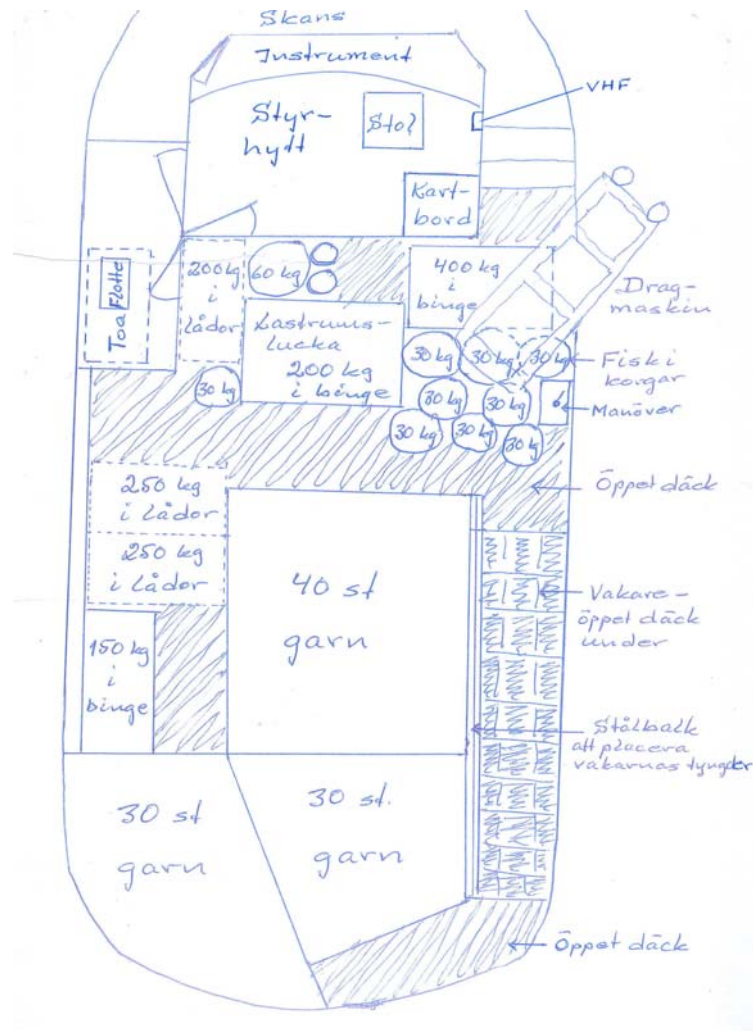 Skans
Instrument
VHF
Styr-
hytt
Stol
Kart-
bord
Toa
Flotte
200 kg
i
lådor
60 kg
400 kg
i
binge
Drag-
maskin
Lastrums-
lucka
200 kg
i binge
30 kg
30 kg
30 kg
30 kg
30 kg
30 kg
30 kg
30 kg
30 kg
Fisk i
korgar
Manöver
Öppet däck
250 kg
i lådor
250 kg
i lådor
40 st
garn
Vakare -
öppet däck
under
150 kg
i
binge
Stålbalk
att placera
vakarnas tyngder
30 st
garn
30 st.
garn
Öppet däck